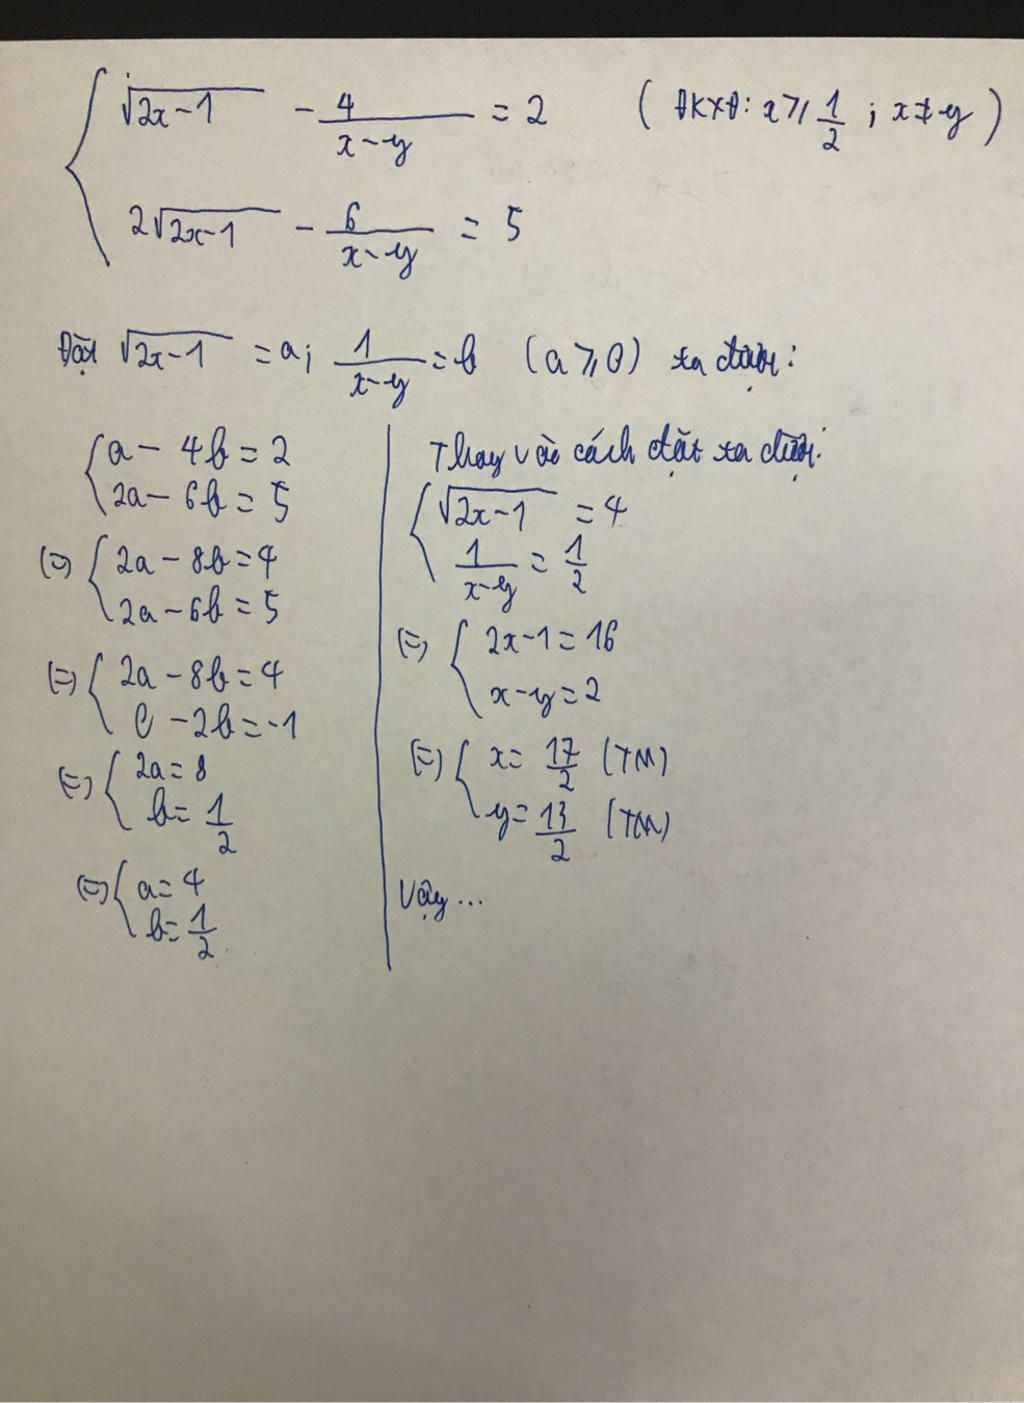 √2x-1 - 4/(x-y) = 2 (ĐKXĐ: x ⩾ 1/2 ; x ≠ y)
2√2x-1 - 6/(x-y) = 5
Đặt √2x-1 = a; 1/(x-y) = b (a ⩾ 0) ta được:
a - 4b = 2
2a - 6b = 5
(=) 2a - 8b = 4
2a - 6b = 5
(=) 2a - 8b = 4
0 - 2b = -1
(=) 2a = 8
b = 1/2
(=) a = 4
b = 1/2
Thay vào cách đặt ta được:
√2x-1 = 4
1/(x-y) = 1/2
(=) 2x-1 = 16
x-y = 2
(=) x = 17/2 (TM)
y = 13/2 (TM)
Vậy ...